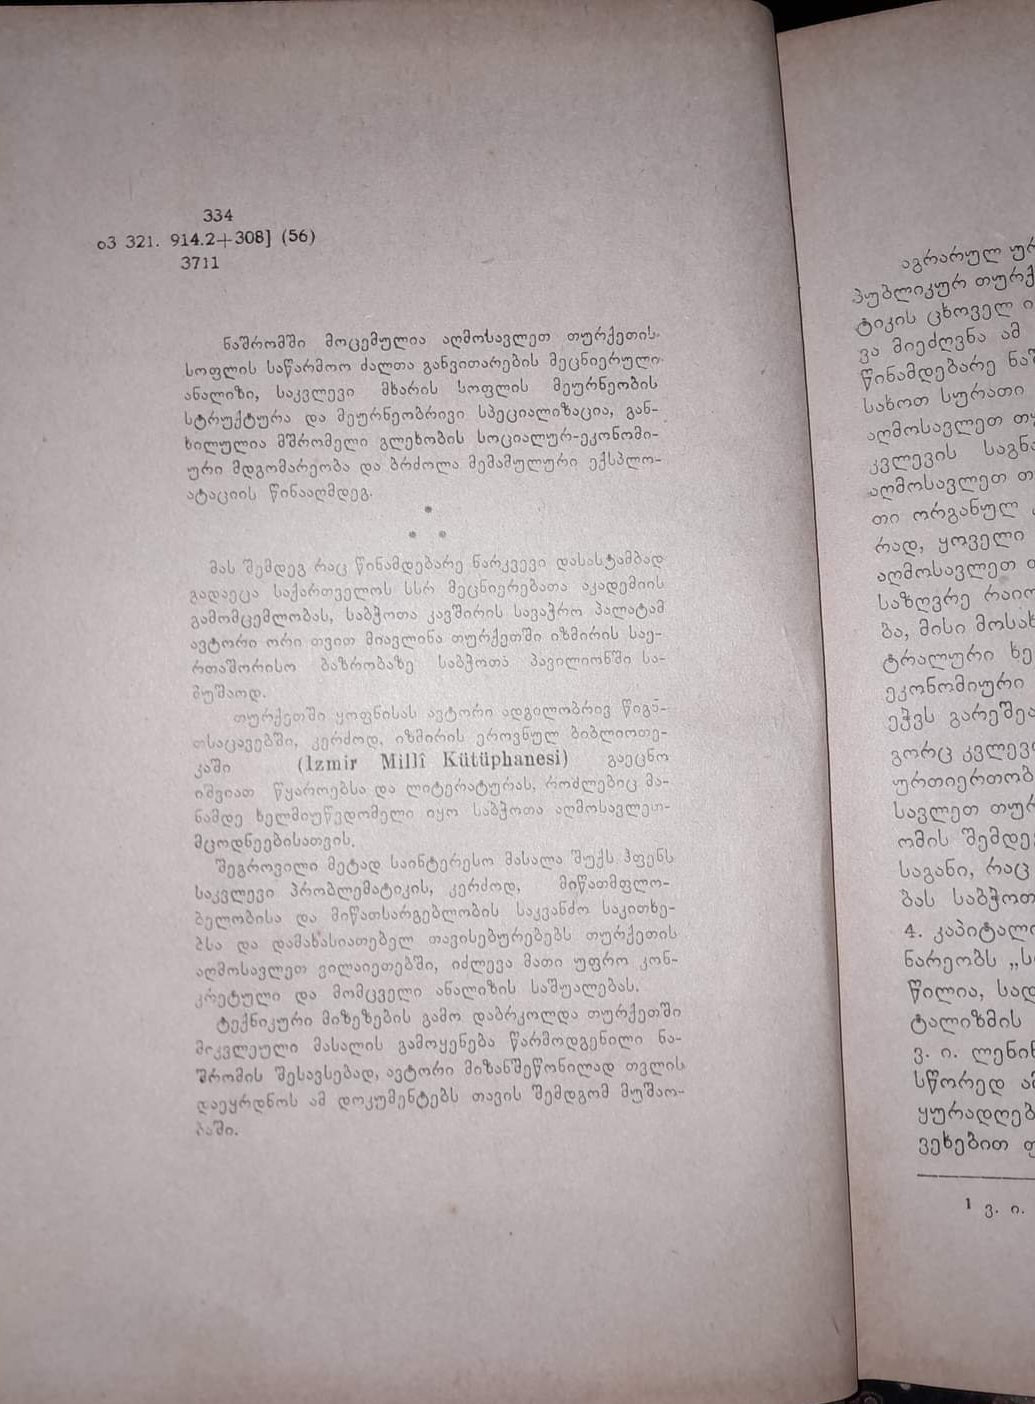 334
ი3 321. 914.2+308] (56)
3711
ნაშრომში მოცემულია აღმოსავლეთ თურქეთის
სოფლის საწარმოო ძალთა განვითარების მეცნიერული
ანალიზი, საკვლევი მხარის სოფლის მეურნეობის
სტრუქტურა და მეურნეობრივი სპეციალიზაცია, გან-
ხილულია მშრომელი გლეხობის სოციალურ-ეკონომი-
ური მდგომარეობა და ბრძოლა მემამულური ექსპლო-
ატაციის წინააღმდეგ.
*
* *
მას შემდეგ რაც წინამდებარე ნარკვევი დასასტამბად
გადაეცა საქართველოს სსრ მეცნიერებათა აკადემიის
გამომცემლობას, საბჭოთა კავშირის სავაჭრო პალატამ
ავტორი ორი თვით მიავლინა თურქეთში იზმირის საე-
რთაშორისო ბაზრობაზე საბჭოთა პავილიონში სა-
მუშაოდ.
თურქეთში ყოფნისას ავტორი ადგილობრივ წიგნ-
თსაცავებში, კერძოდ, იზმირის ეროვნულ ბიბლიოთე-
კაში (Izmir Millî Kütüphanesi) გაეცნო
იშვიათ წყაროებსა და ლიტერატურას, რომლებიც მა-
ნამდე ხელმიუწვდომელი იყო საბჭოთა აღმოსავლეთ-
მცოდნეებისათვის.
შეგროვილი მეტად საინტერესო მასალა შუქს ჰფენს
საკვლევი პრობლემატიკის, კერძოდ, მიწათმფლო-
ბელობისა და მიწათსარგებლობის საკვანძო საკითხე-
ბსა და დამახასიათებელ თავისებურებებს თურქეთის
აღმოსავლეთ ვილაიეთებში, იძლევა მათი უფრო კონ-
კრეტული და მომცველი ანალიზის საშუალებას.
ტექნიკური მიზეზების გამო დაბრკოლდა თურქეთში
მიკვლეული მასალის გამოყენება წარმოდგენილი ნა-
შრომის შესავსებად, ავტორი მიზანშეწონილად თვლის
დაეყრდნოს ამ დოკუმენტებს თავის შემდგომ მუშაო-
ბაში.
აგრარულ
პუბლიკურ
ტიკის ცხოველ
ვა მიეძღვნა ამ
წინამდებარე
სახოთ სურათი
აღმოსავლეთ
კვლევის
აღმოსავლეთ
თი ორგანულ
რად, ყოველი
აღმოსავლეთ
საზღვრე
ბა, მისი
ტრალური
ეკონომიური
ეჭვს
გორც
ურთიერთობ
სავლეთ
ომის
საგანი, რაც
ბას
4.
ნარეობს
წილია,
ტალიზმის
ვ. ი.
სწორედ
ყურადღებ
ვეხებით
1 ვ. ი.